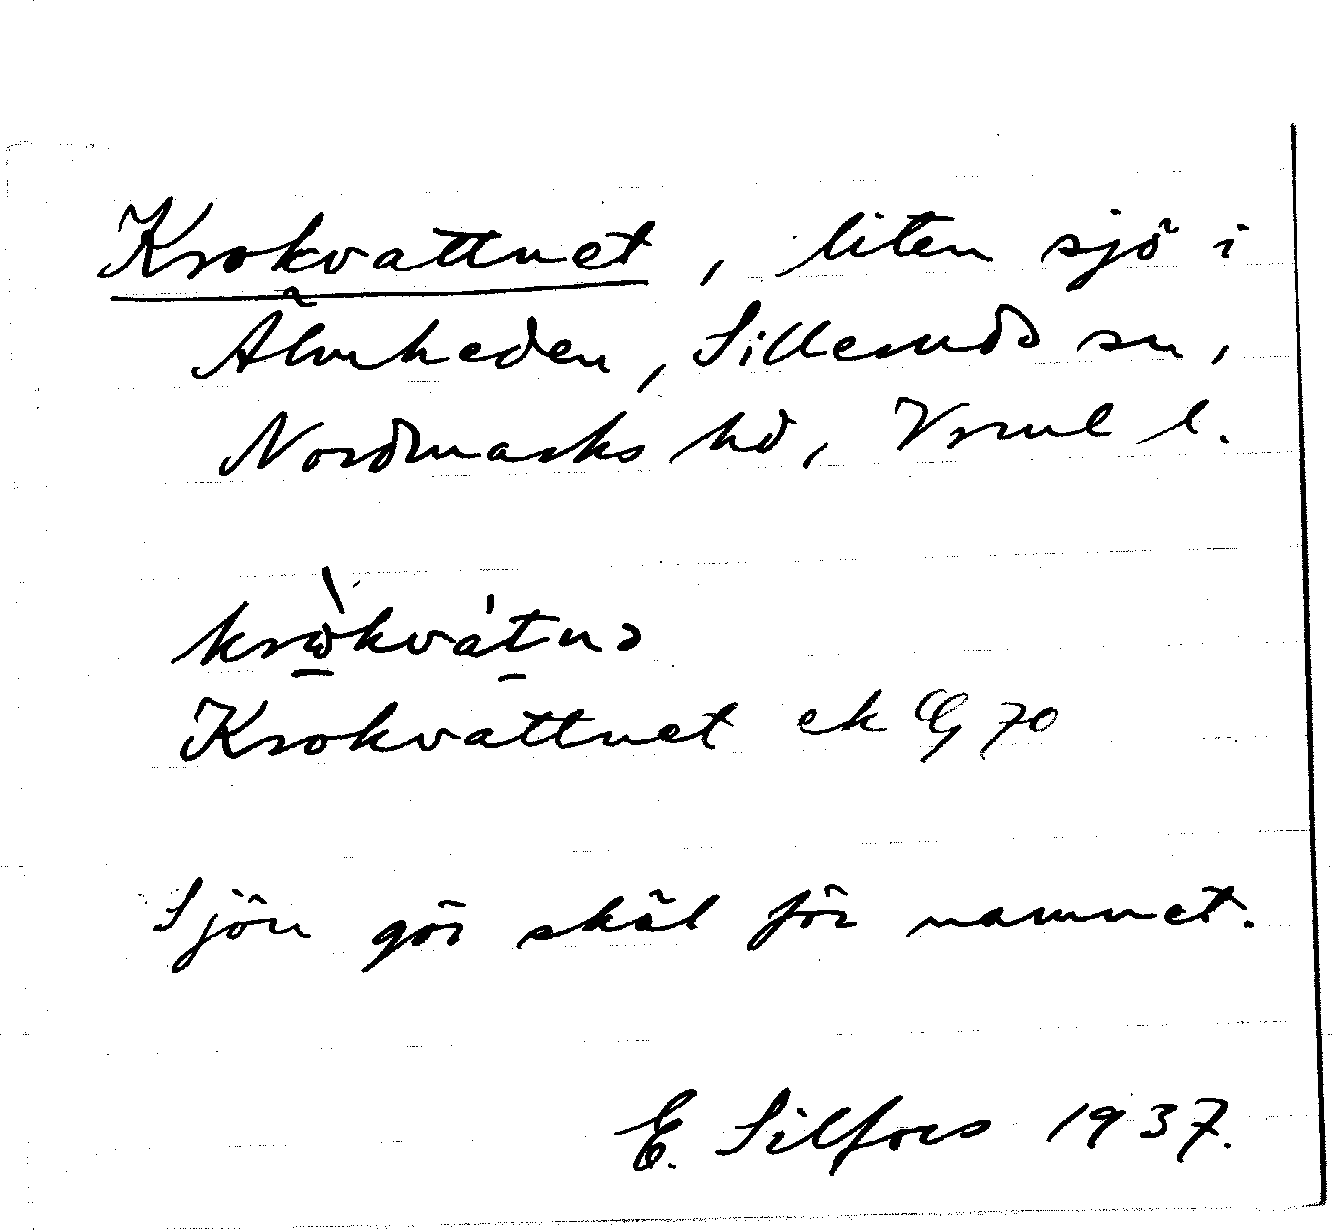 Krokvattnet, liten sjö i
Älmheden, Sillerudd sn,
Nordmarks hd, Vrml l.
krὼkvátnə
Krokvattnet ek G 70
Sjön gör skäl för namnet.
E. Silfors 1937.